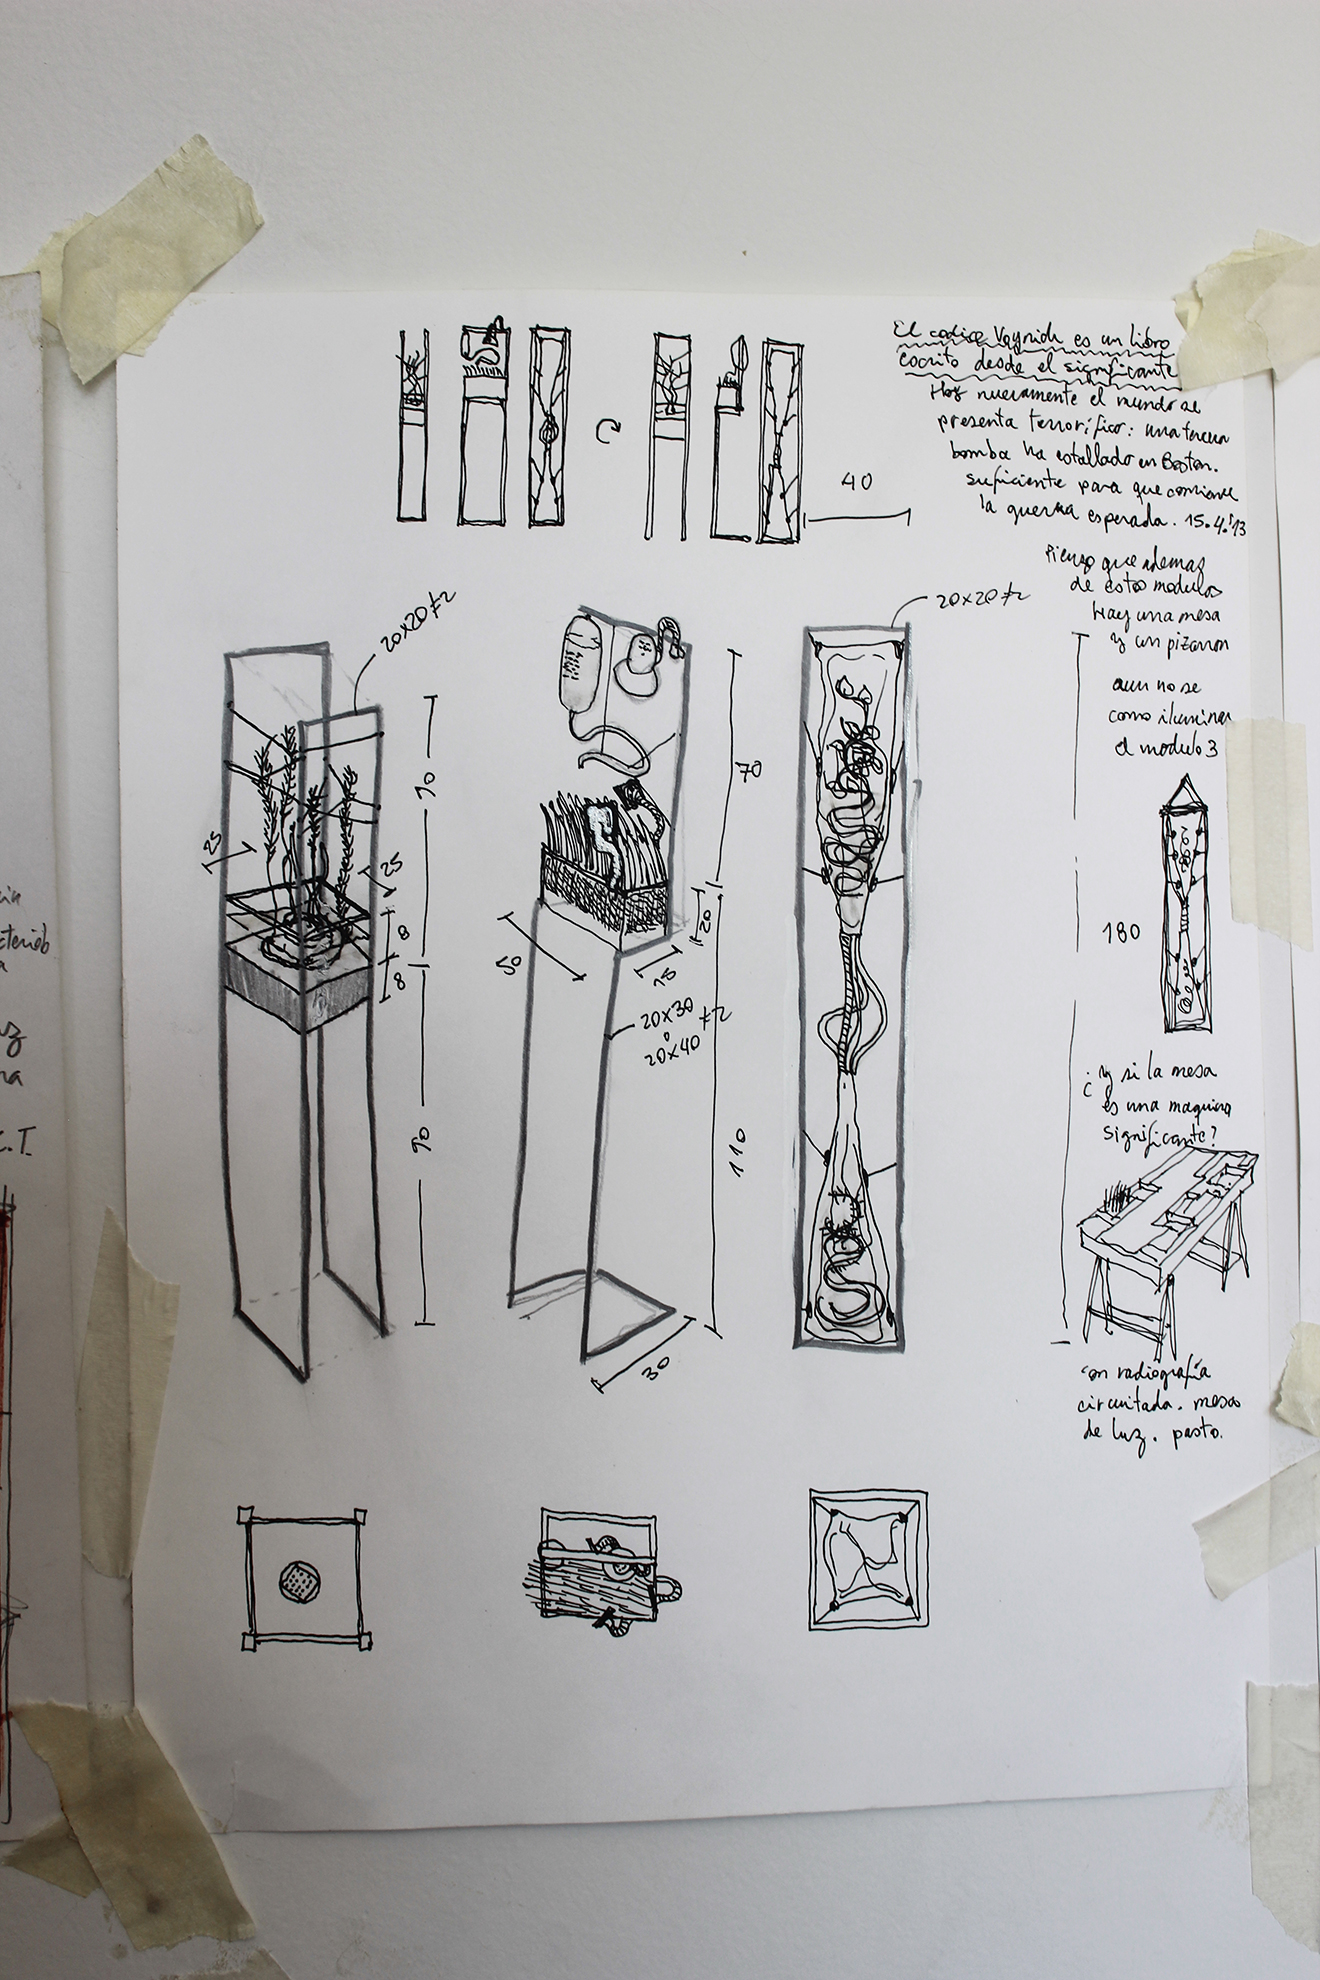 El codice Voynich es un libro
escrito desde el significante
Hoy nuevamente el mundo se
presenta terrorífico: una tercera
bomba ha estallado en Boston.
suficiente para que comience
la guerra esperada. 15.4.'13
40
Pienso que ademas
de estos modulos
Hay una mesa
y un pizarron
aun no se
como iluminar
el modulo 3
20x20#2
20x20#2
90
25
25
8
8
90
70
20
50
15
20x30 #2
o
20x40
110
30
180
¿ y si la mesa
es una maquina
significante?
con radiografía
circuitada. mesa
de luz. pasto.